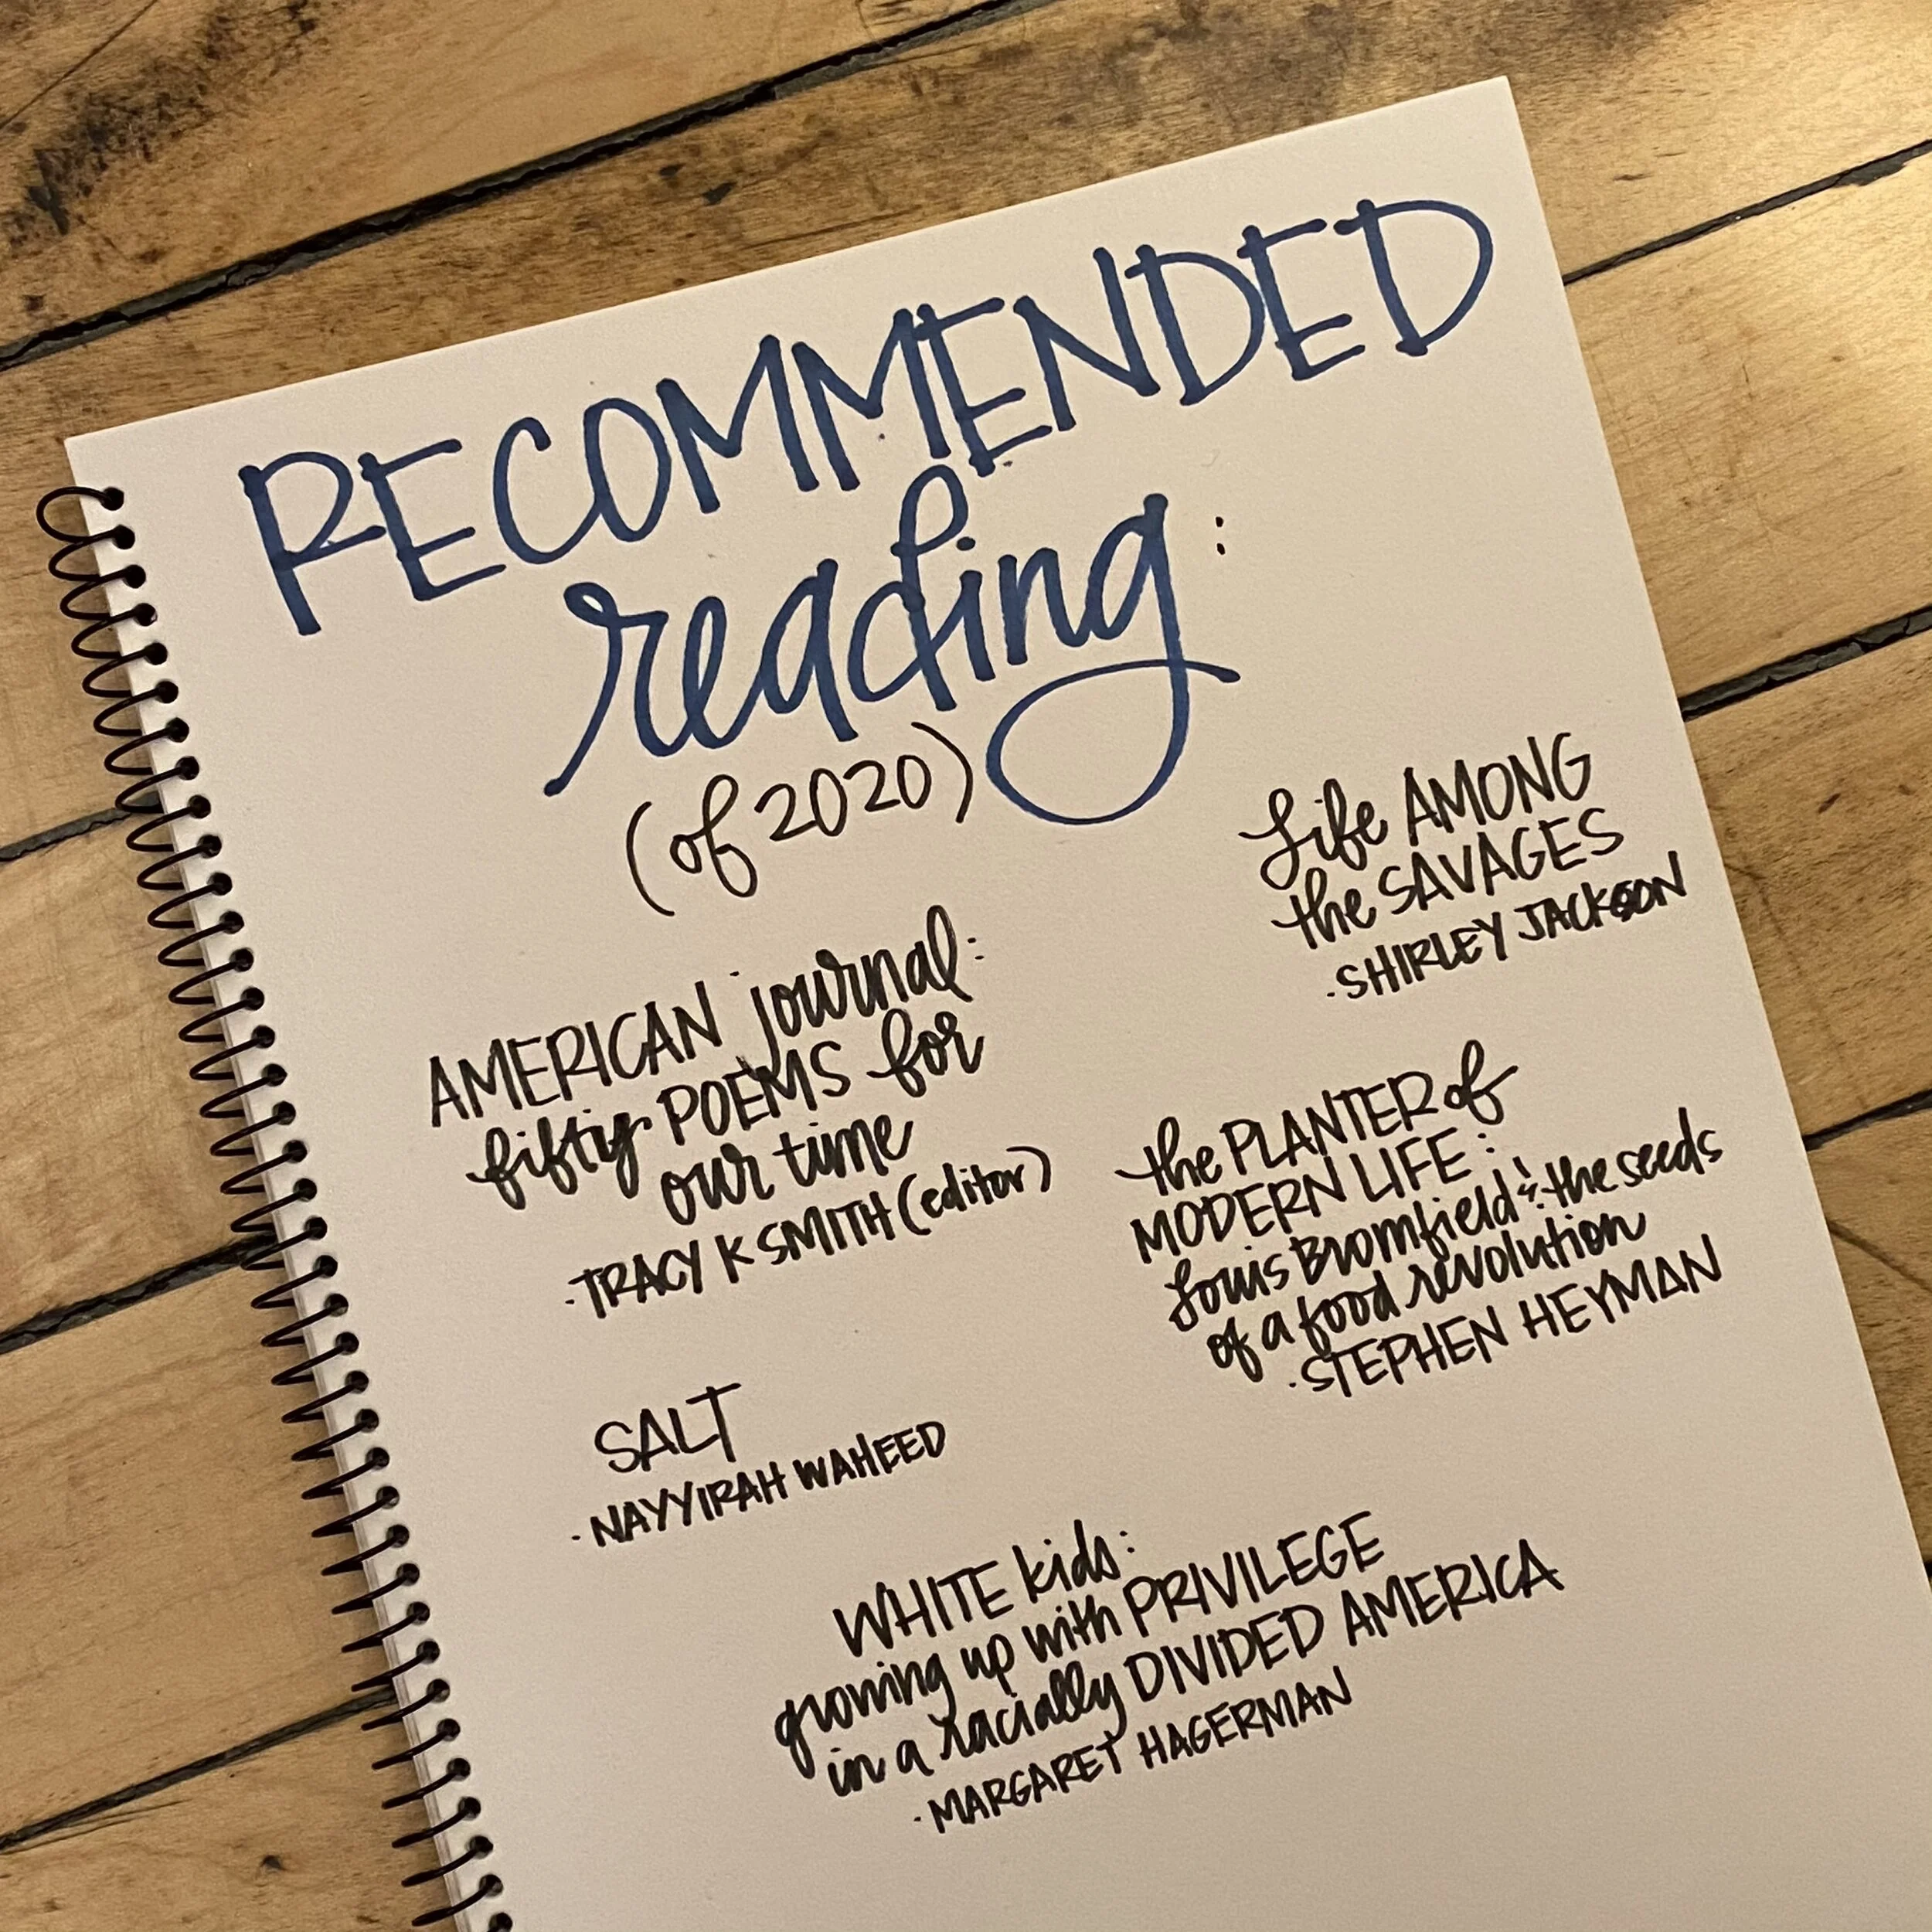 RECOMMENDED
reading:
(of 2020)
Life AMONG
the SAVAGES
·SHIRLEY JACKSON
AMERICAN journal:
fifty POEMS for
our time
·TRACY K SMITH (editor)
the PLANTER of
MODERN LIFE:
Louis Bromfield & the seeds
of a food revolution
·STEPHEN HEYMAN
SALT
·NAYYIRAH WAHEED
WHITE kids:
growing up with PRIVILEGE
in a racially DIVIDED AMERICA
·MARGARET HAGERMAN